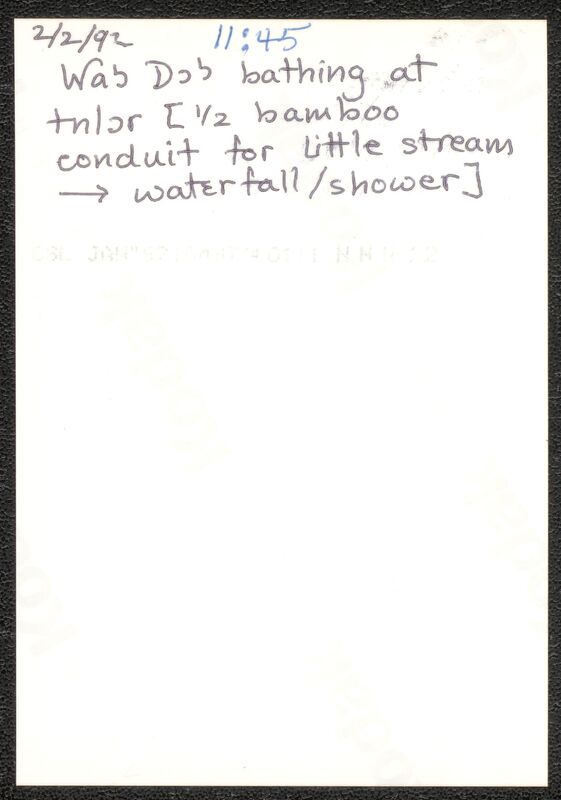 2/2/92 11:45
Waɔ Dɔɔ bathing at
tnlɔr [ 1/2 bamboo
conduit for little stream
→ waterfall/shower]
Kodak
Kodak